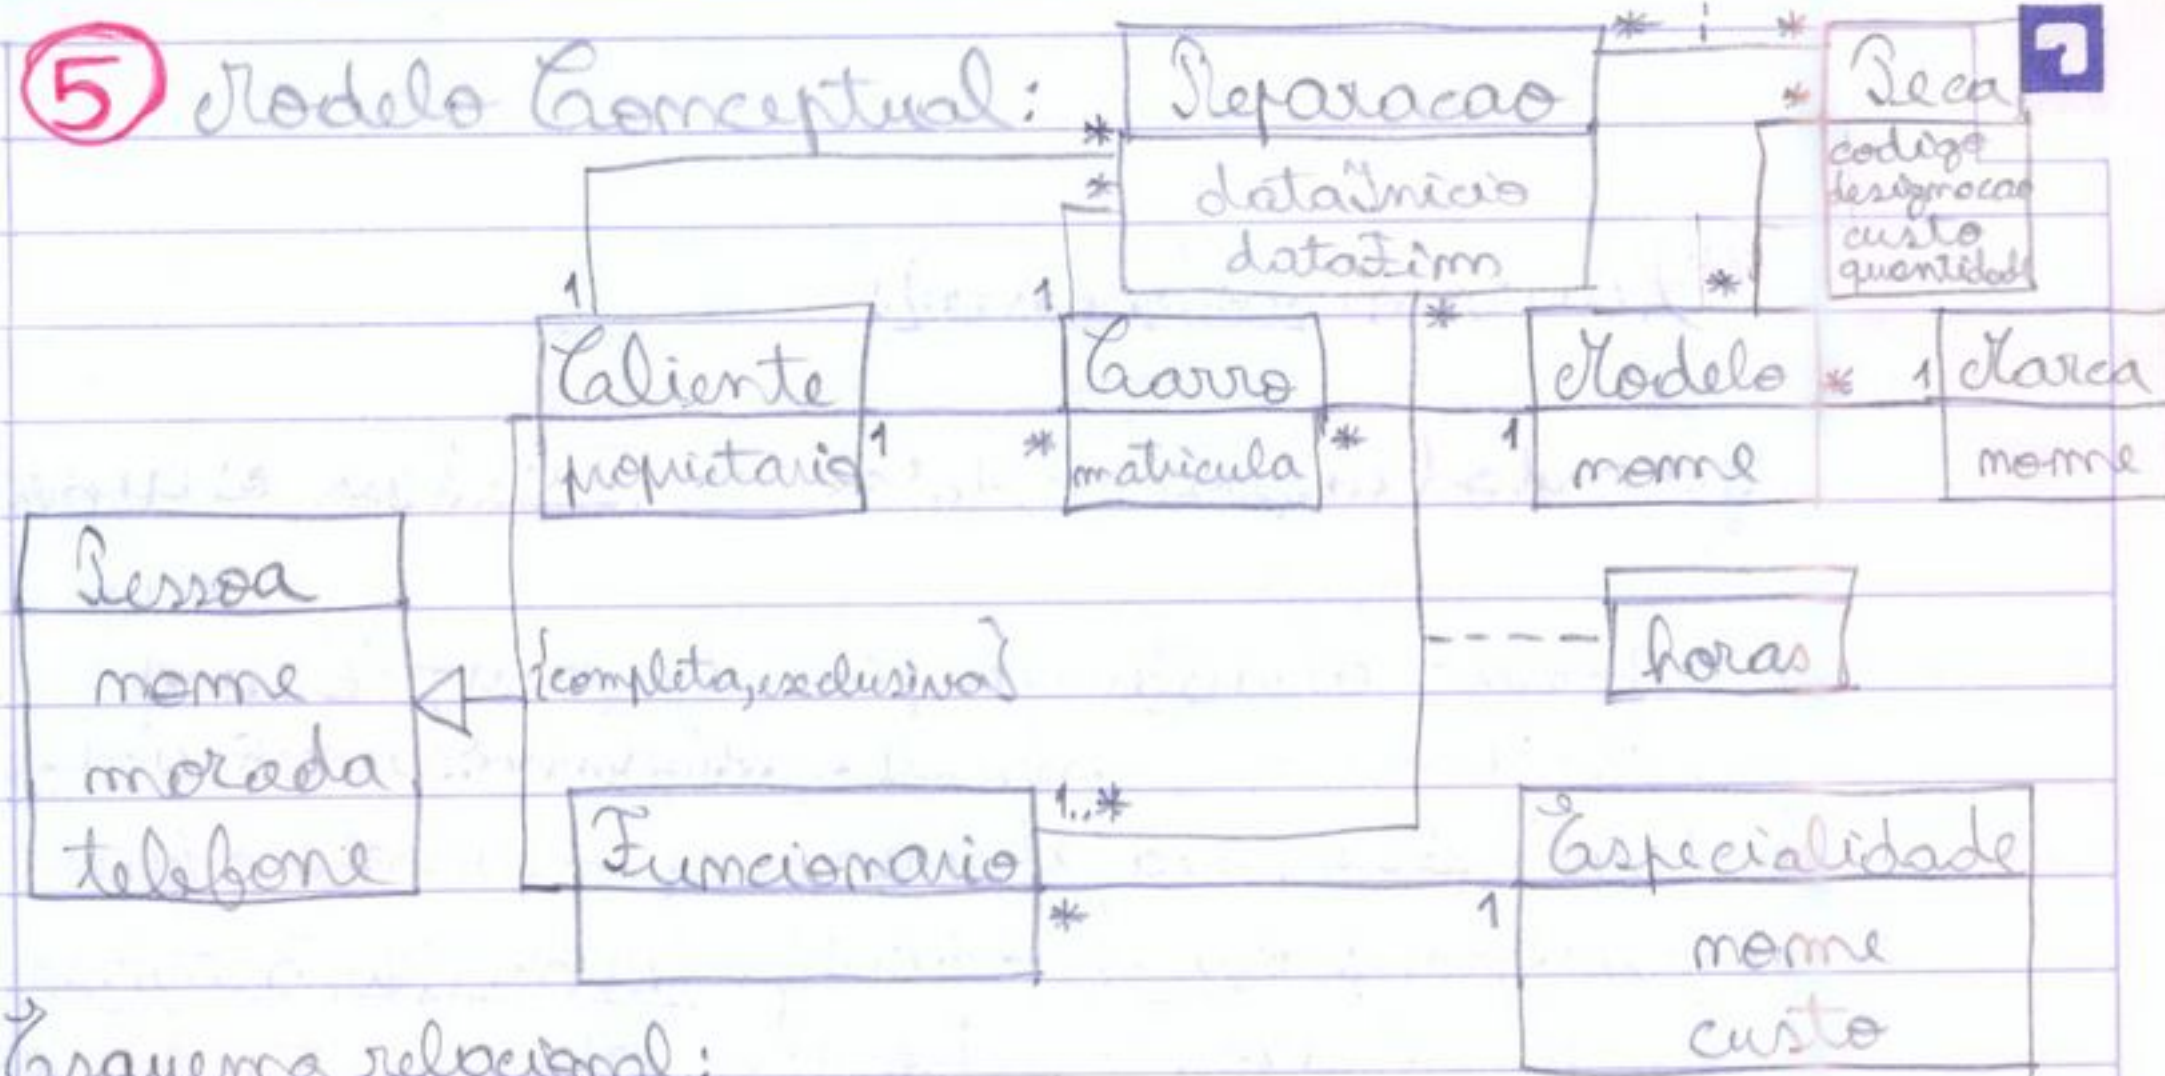 5 Modelo Conceptual:
Reparacao
dataInicio
dataFim
* *
Peca
codigo
designacao
custo
quantidade
*
*
*
1
1
*
*
Cliente
propietario
1
*
Carro
matricula
*
1
Modelo
nome
* 1
Marca
nome
Pessoa
nome
morada
telefone
{completa,exclusiva}
horas
Funcionario
1..*
*
1
Especialidade
nome
custo
Esquema relacional: